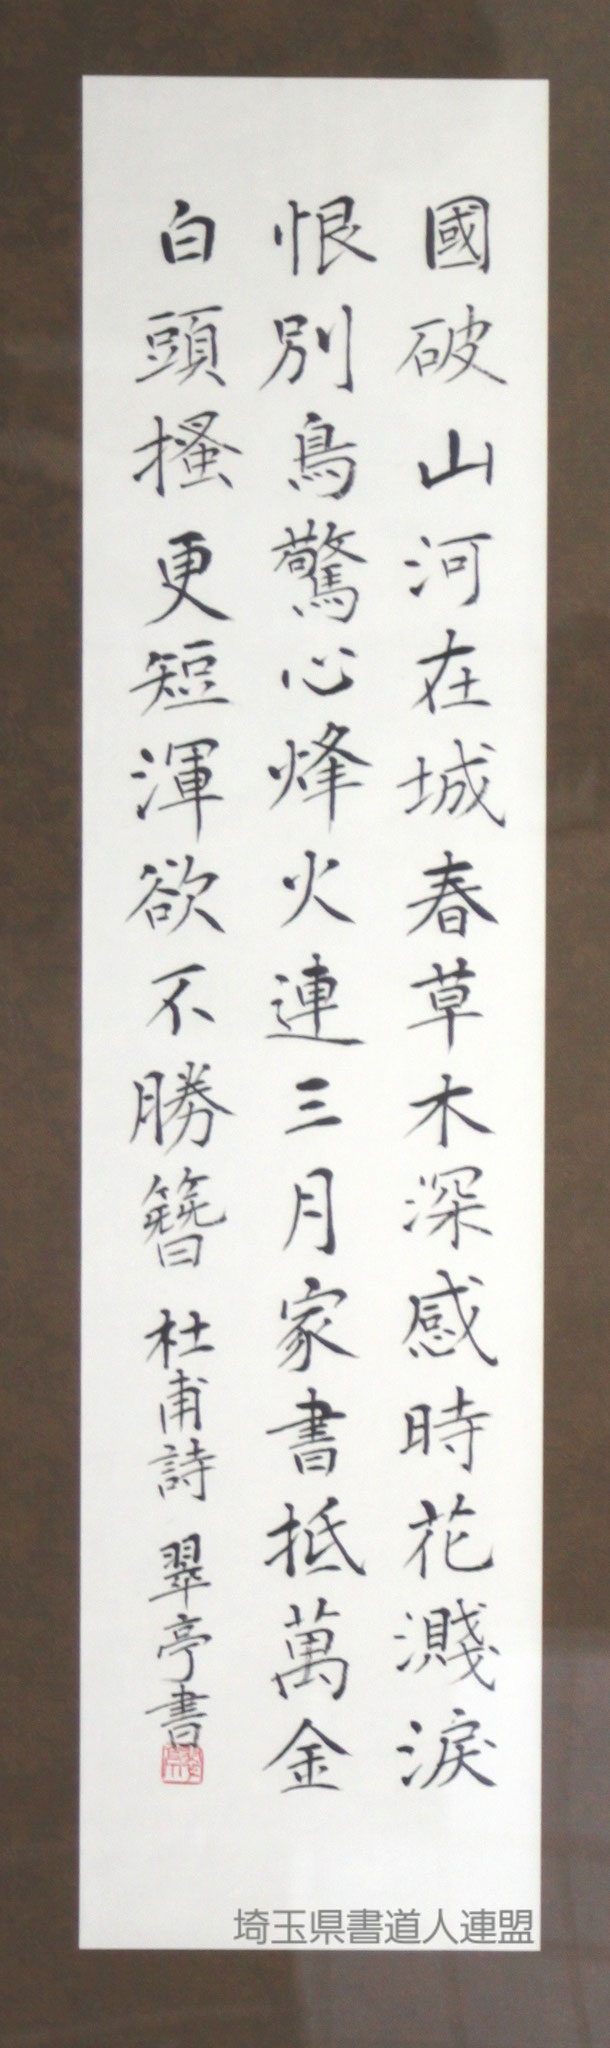 國破山河在城春草木深感時花濺淚
恨別鳥驚心烽火連三月家書抵萬金
白頭搔更短渾欲不勝簪 杜甫詩 翠亭書
埼玉県書道人連盟